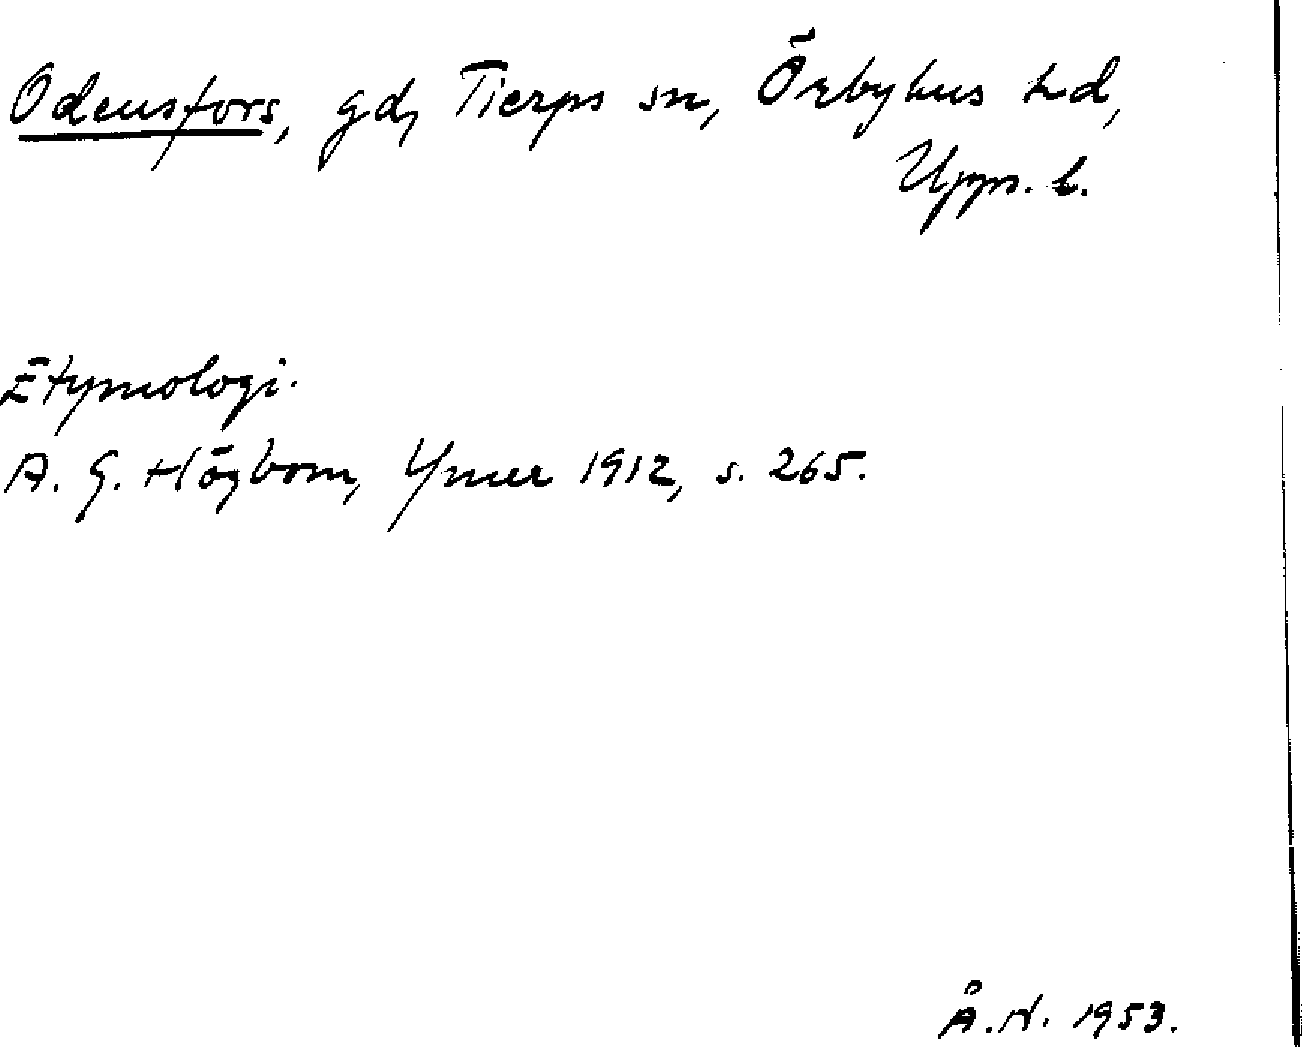 Odensfors, gd, Tierps sn, Örbyhus hd,
Upps. l.
Etymologi.
A. G. Högbom, Ymer 1912, s. 265.
Å.N. 1953.